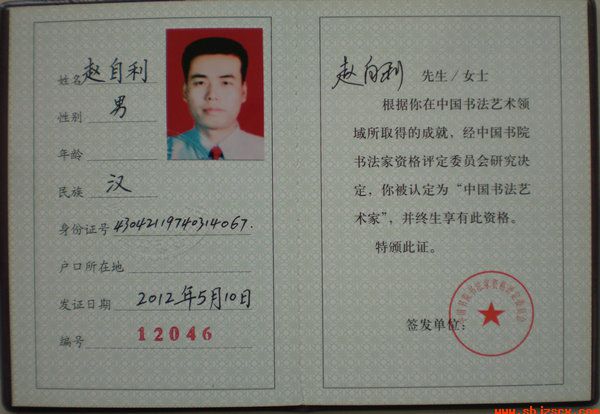 姓名 赵自利
性别 男
年龄
民族 汉
身份证号 43042119740314067.
户口所在地
发证日期 2012年5月10日
编号 12046
赵自利 先生／女士
根据你在中国书法艺术领
域所取得的成就，经中国书院
书法家资格评定委员会研究决
定，你被认定为“中国书法艺
术家”，并终生享有此资格。
特颁此证。
签发单位：
中国书院书法家资格评定委员会
www.shjzscx.com